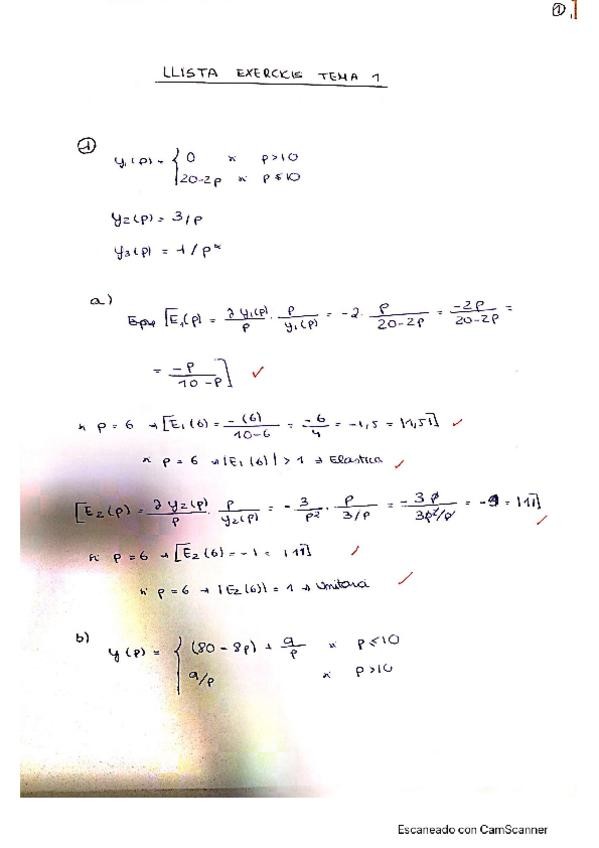 ①
LLISTA EXERCICIS TEMA 1
①
y₁(p) = { 0 si p>10
20-2p si p≤10
y₂(p) = 3/p
y₃(p) = 1/p
a)
[E₁(p) = ∂y₁(p)/p · p/y₁(p) = -2 · p/20-2p = -2p/20-2p =
= -p/10-p] ✓
si p=6 → [E₁(6) = -(6)/10-6 = -6/4 = -1,5 = |1,5|] ✓
si p=6 → |E₁(6)| > 1 → Elastica ✓
[E₂(p) = ∂y₂(p)/p · p/y₂(p) = -3/p² · p/3/p = -3p/3p²/p = -1 = |1|] ✓
si p=6 → [E₂(6) = -1 = |1|] ✓
si p=6 → |E₂(6)| = 1 → Unitaria ✓
b)
y(p) = { (80-8p) + 9/p si p≤10
9/p si p>10
Escaneado con CamScanner